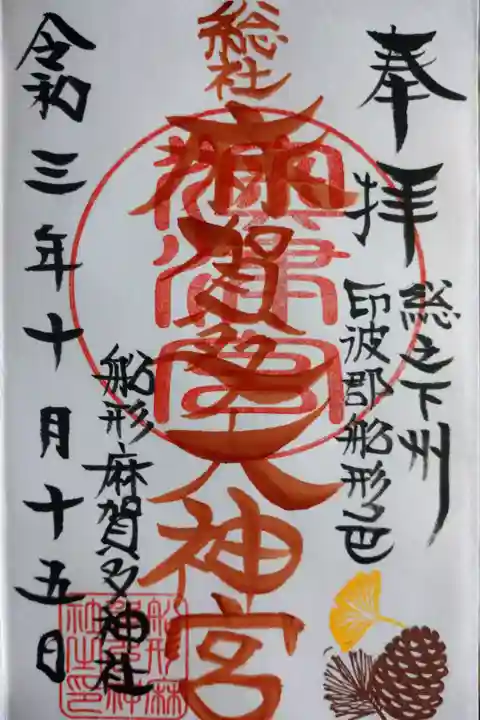 奉拝
総之下州
印波郡船形邑
総社
麻賀多大神宮
船形 麻賀多神社
令和三年十月十五日